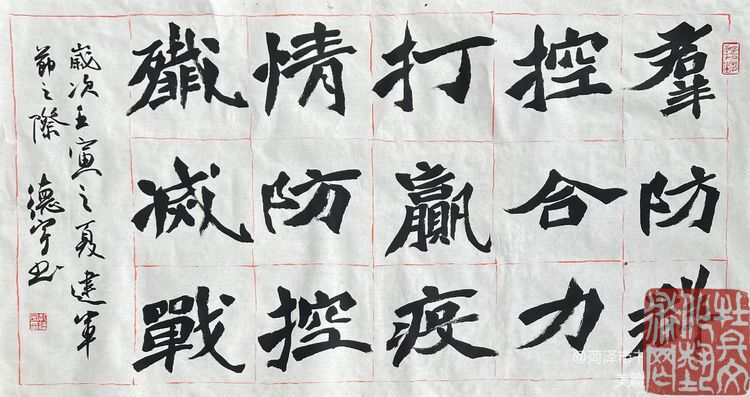 羣防群
控合力
打贏疫
情防控
殲滅戰
歲次壬寅之夏建军
節之際 德宇书
@菏泽市
美篇